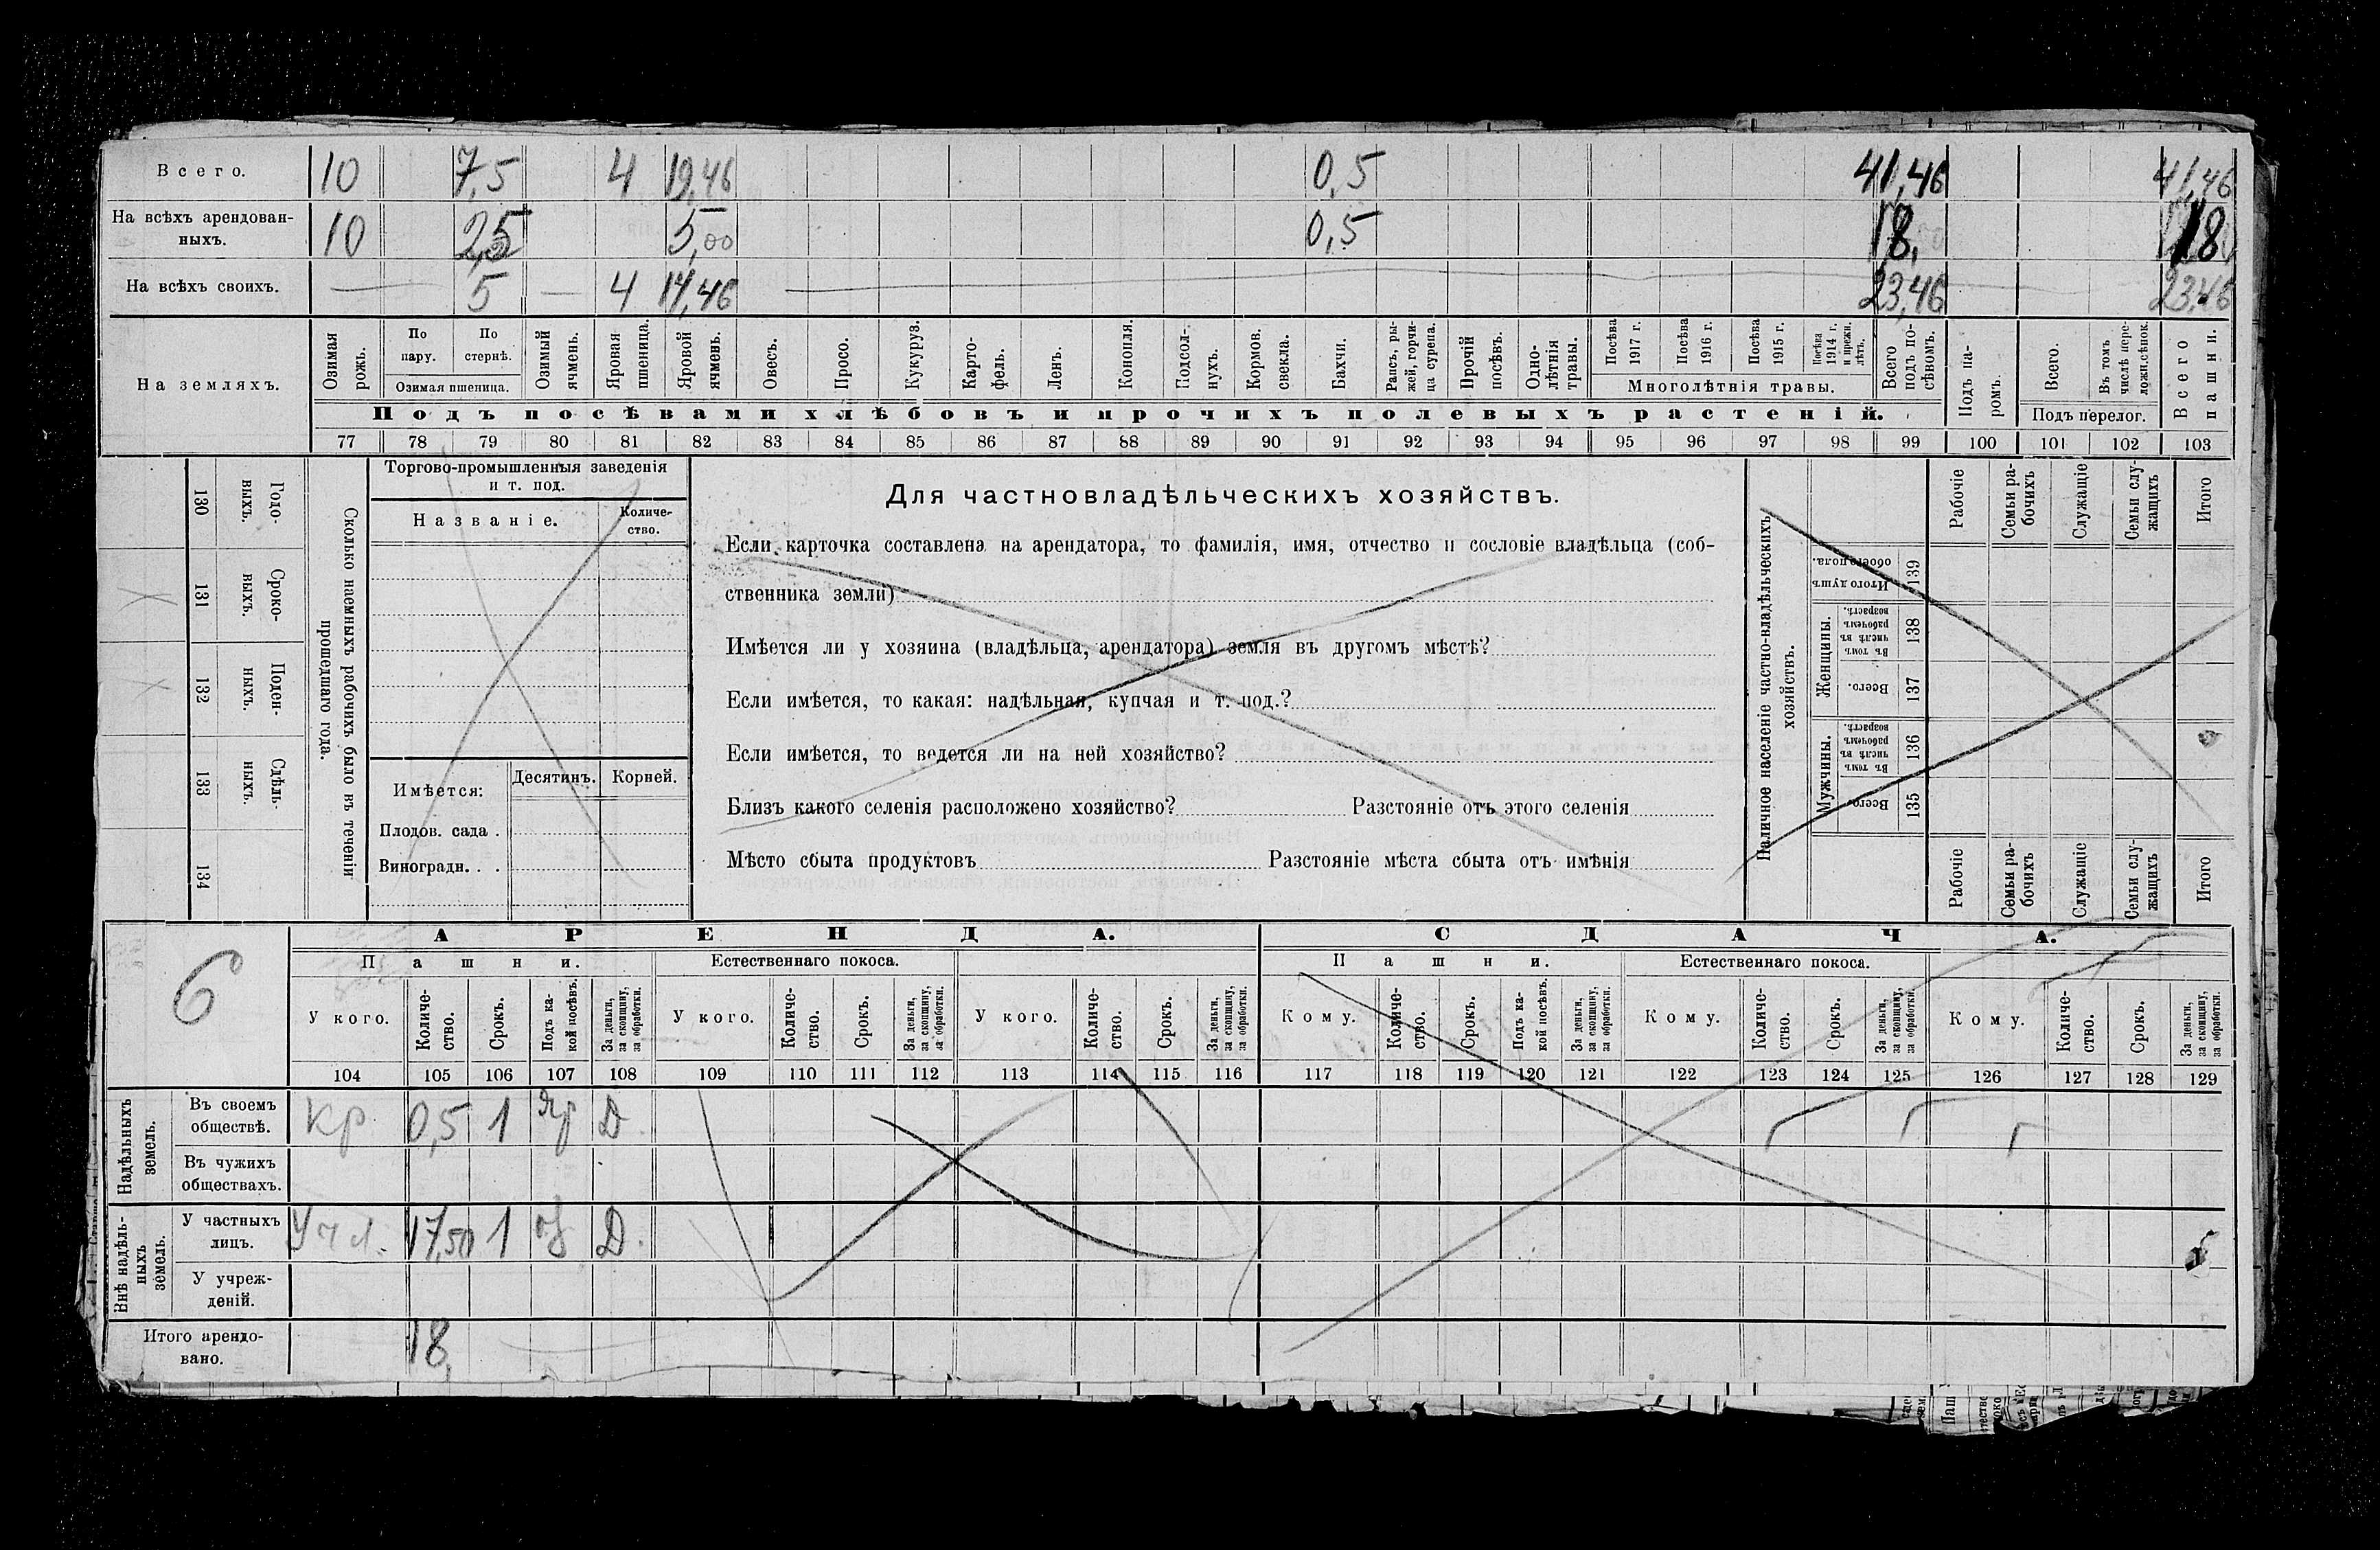 Всего. 10 7,5 4 19,46 0,5 41,46 41,46
На всѣхъ арендован-
ныхъ. 10 2,5 5,00 0,5 18, 18
На всѣхъ своихъ. — 5 — 4 14,46 23,46 23,46
На земляхъ.
Озимая рожь.
По пару.
По стернѣ.
Озимая пшеница.
Озимый ячмень.
Яровая пшеница.
Яровой ячмень.
Овесъ.
Просо.
Кукуруз.
Карто-
фель.
Ленъ.
Конопля.
Подсол-
нухъ.
Кормов. свекла.
Бахчи.
Рапсъ, ры-
жей, горчи-
ца сурепа.
Прочій посѣвъ.
Одно-
лѣтнія травы.
Посѣва 1917 г.
Посѣва 1916 г.
Посѣва 1915 г.
Посѣва 1914 г. и прежн. лѣтъ.
Многолѣтнія травы.
Всего подъ по-
сѣвомъ.
Подъ па-
ромъ.
Всего.
Въ томъ числѣ пере-
ложн.сѣнок.
Подъ перелог.
Всего пашни.
Подъ посѣвами хлѣбовъ и прочихъ полевыхъ растеній.
77 78 79 80 81 82 83 84 85 86 87 88 89 90 91 92 93 94 95 96 97 98 99 100 101 102 103
130 Годо-
выхъ.
131 Сроко-
выхъ.
132 Поден-
ныхъ.
133 Сдѣль-
ныхъ.
134
Сколько наемныхъ рабочихъ было въ теченіи
прошедшаго года.
Торгово-промышленныя заведенія
и т. под.
Названіе.
Количе-
ство.
Имѣется:
Десятинъ.
Корней.
Плодов. сада .
Виноградн. . .
Для частновладѣльческихъ хозяйствъ.
Если карточка составлена на арендатора, то фамилія, имя, отчество и сословіе владѣльца (соб-
ственника земли)
Имѣется ли у хозяина (владѣльца, арендатора) земля въ другомъ мѣстѣ?
Если имѣется, то какая: надѣльная, купчая и т. под.?
Если имѣется, то ведется ли на ней хозяйство?
Близъ какого селенія расположено хозяйство? Разстояніе отъ этого селенія
Мѣсто сбыта продуктовъ Разстояніе мѣста сбыта отъ имѣнія
Наличное населеніе частно-владѣльческихъ
хозяйствъ.
Рабочіе
Семьи ра-
бочихъ
Служащіе
Семьи слу-
жащихъ
Итого
Итого душъ обоего пола. 139
Женщины.
Въ томъ числѣ въ рабочемъ возрастѣ. 138
Всего. 137
Мужчины.
Въ томъ числѣ въ рабочемъ возрастѣ. 136
Всего. 135
Рабочіе
Семьи ра-
бочихъ
Служащіе
Семьи слу-
жащихъ
Итого
6
АРЕНДА. СДАЧА.
Пашни. Естественнаго покоса. Пашни. Естественнаго покоса.
У кого.
Количе-
ство.
Срокъ.
Подъ ка-
кой посѣвъ.
За деньги, за скопщину, за обработки.
У кого.
Количе-
ство.
Срокъ.
За деньги, за скопщину, за обработки.
У кого.
Количе-
ство.
Срокъ.
За деньги, за скопщину, за обработки.
Кому.
Количе-
ство.
Срокъ.
Подъ ка-
кой посѣвъ.
За деньги, за скопщину, за обработки.
Кому.
Количе-
ство.
Срокъ.
За деньги, за скопщину, за обработки.
Кому.
Количе-
ство.
Срокъ.
За деньги, за скопщину, за обработки.
104 105 106 107 108 109 110 111 112 113 114 115 116 117 118 119 120 121 122 123 124 125 126 127 128 129
Надѣльныхъ
земель.
Въ своемъ
обществѣ. Кр. 0,5 1 Яр Д.
Въ чужихъ
обществахъ.
Внѣ надѣль-
ныхъ
земель.
У частныхъ
лицъ. У ч л. 17,50 1 оз Д.
У учреж-
деній.
Итого арендо-
вано. 18,